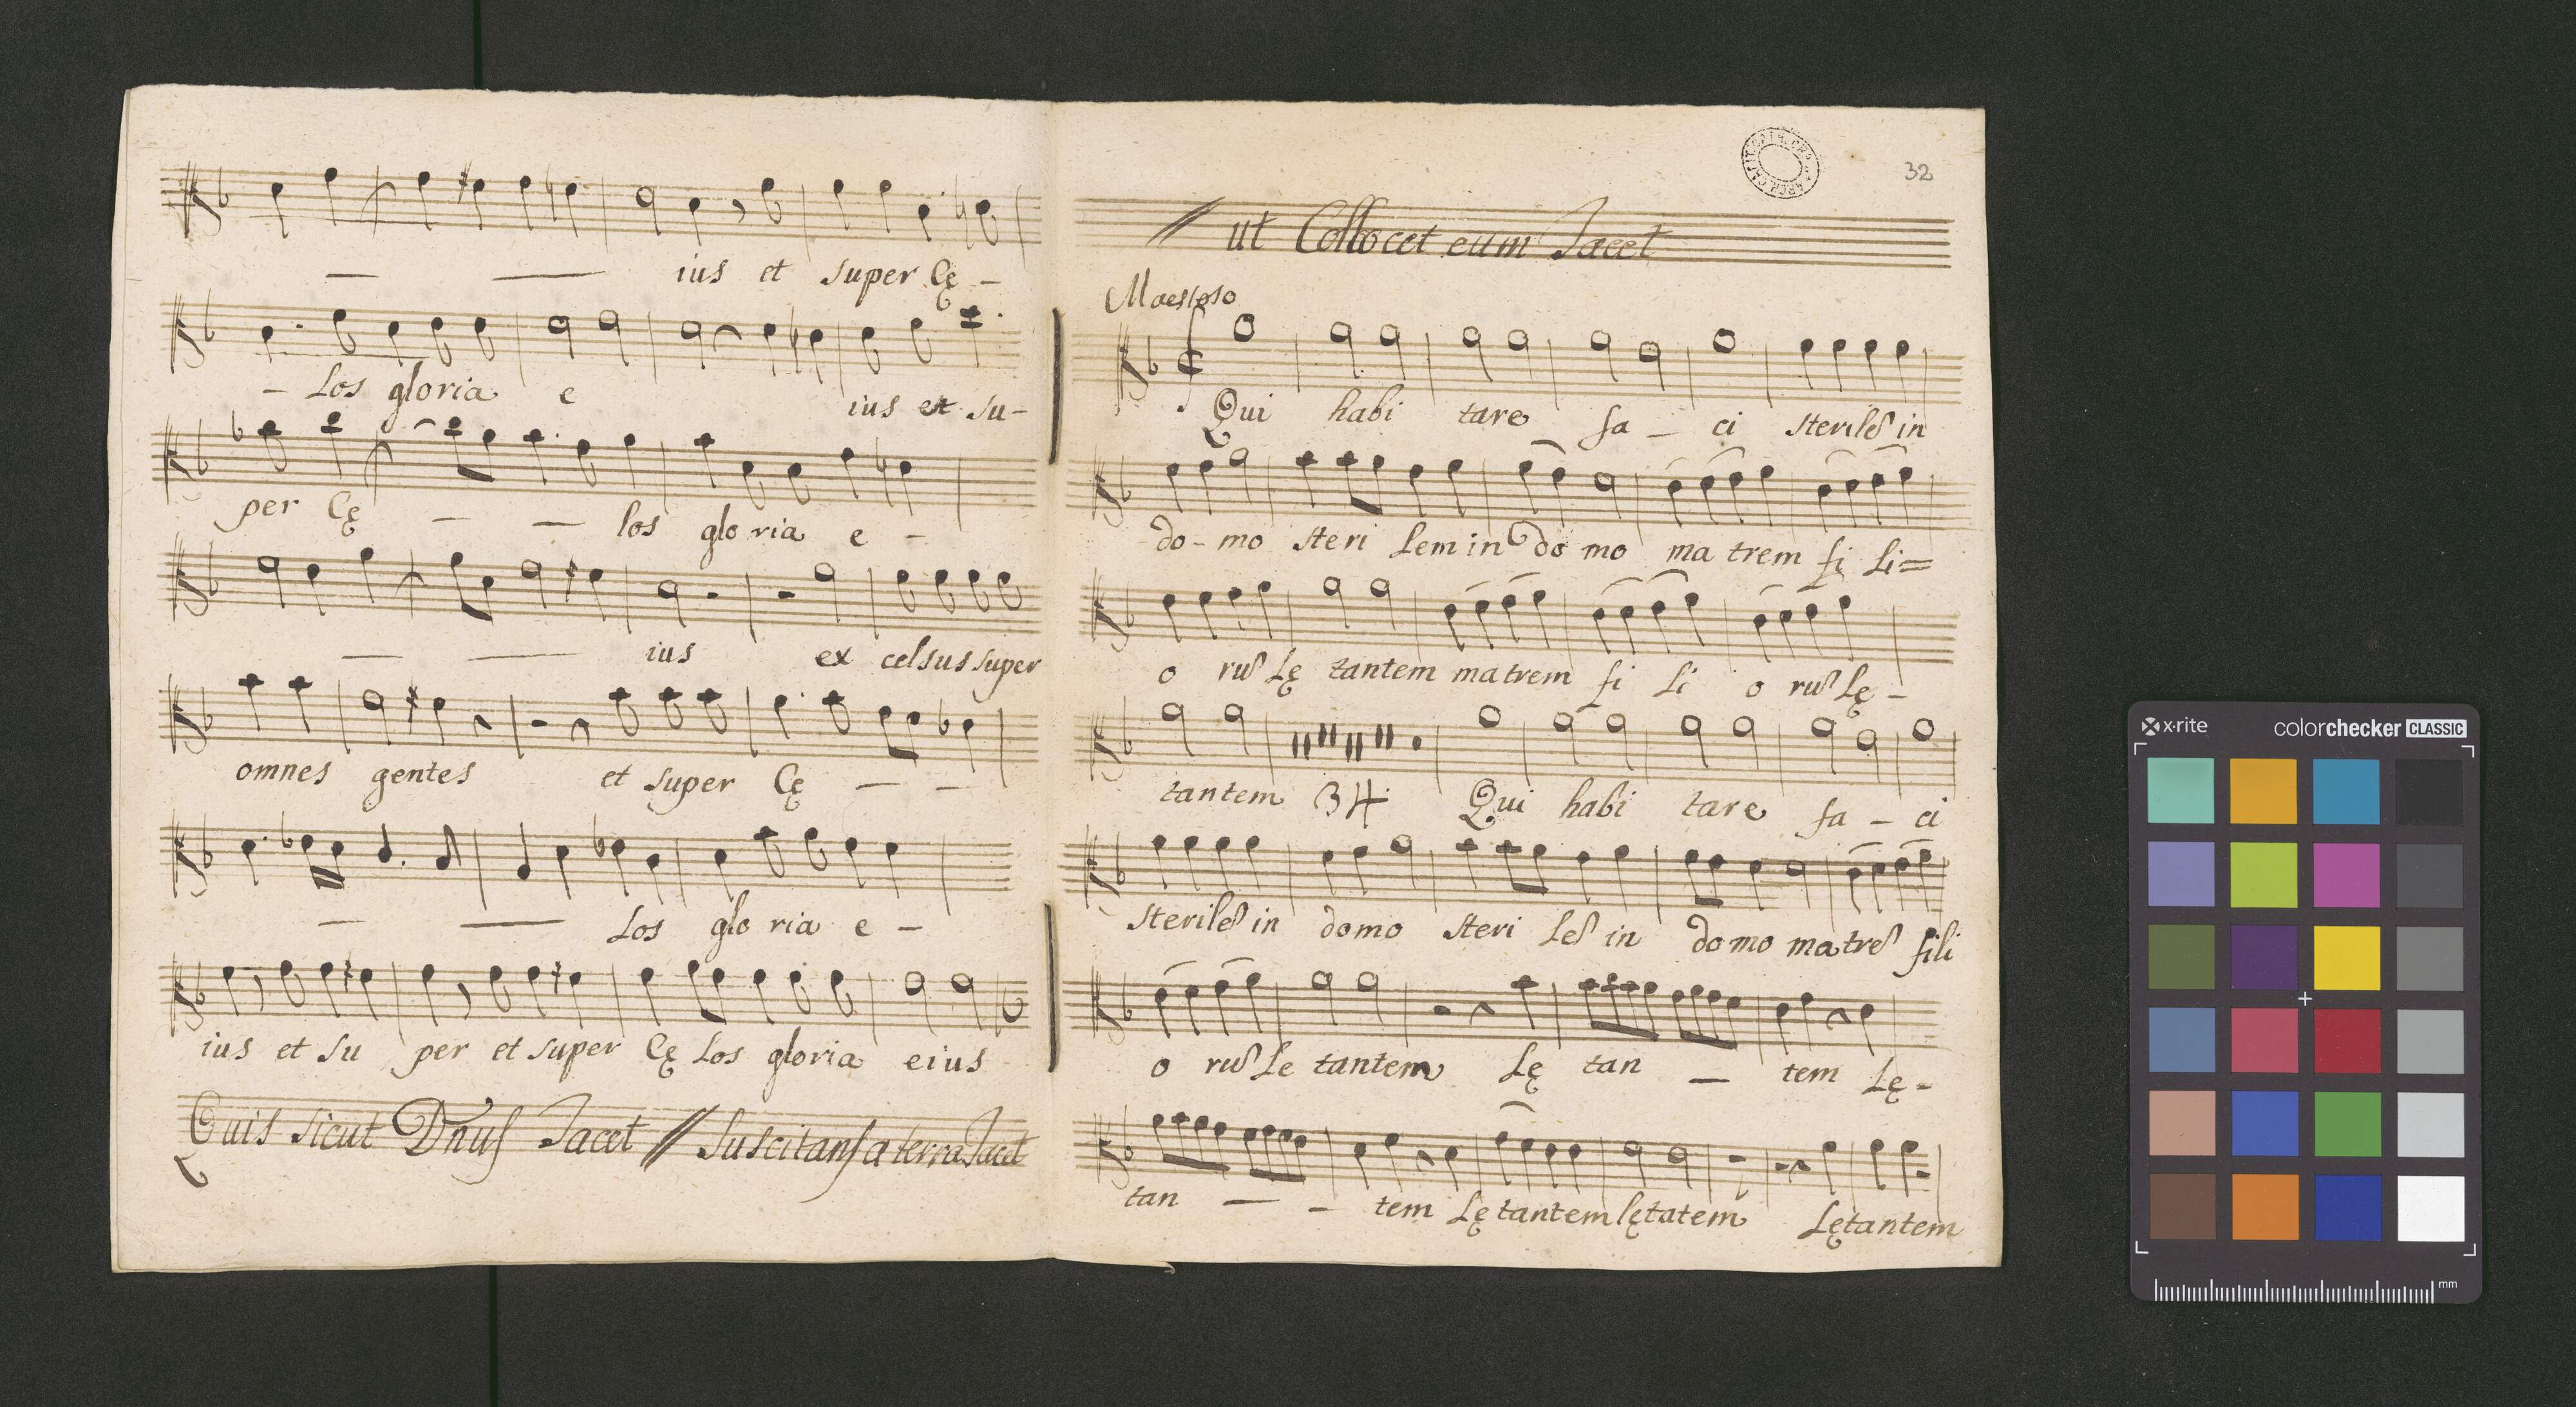 ius et super Cę -
- Los gloria e ius et su-
per Cę los gloria e -
ius ex celsus super
omnes gentes et super Cę
Los glo ria e -
ius et su per et super Cę Los gloria eius
Quis sicut Dnus Jacet // Suscitans a terra Jacet
32
// ut Collocet eum Jacet
Maestoso
Qui habi tare fa - ci sterile in
do - mo steri Lem in do mo ma trem fi li=
o ru Lę tantem matrem fi Li o ru Lę -
tantem 34 Qui habi tare fa - ci
sterile in domo steri Le in domo matre fili
o ru Le tantem Lę tan - tem Lę -
tan - - tem Lę tantem lętatem Lętantem
x·rite colorchecker CLASSIC
mm